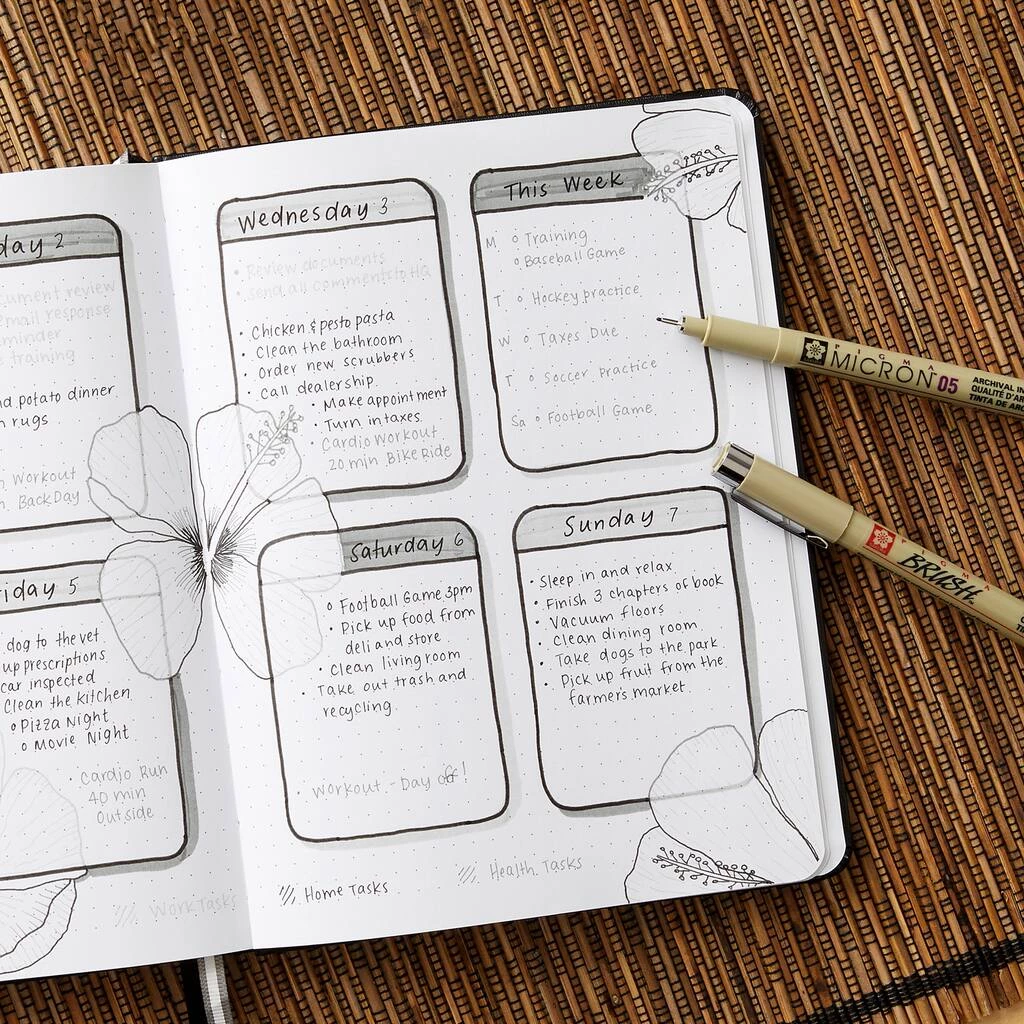 day 2
cument review
email response
minder
training
d potato dinner
rugs
Workout
Back Day
riday 5
dog to the vet
up prescriptions
car inspected
Clean the kitchen
Pizza Night
Movie Night
Cardio Run
40 min
Outside
Work Tasks
Wednesday 3
Review documents
send all comments to HQ
Chicken & pesto pasta
Clean the bathroom
Order new scrubbers
Call dealership
Make appointment
Turn in taxes
Cardio Workout
20 min Bike Ride
This Week
M Training
Baseball Game
T Hockey practice
W Taxes Due
T Soccer practice
Sa Football Game
Saturday 6
Football Game 3pm
Pick up food from
deli and store
Clean living room
Take out trash and
recycling
Workout - Day off!
Sunday 7
Sleep in and relax
Finish 3 chapters of book
Vacuum floors
Clean dining room
Take dogs to the park
Pick up fruit from the
farmer's market
Home Tasks
Health Tasks
PIGMA
MICRON 05
ARCHIVAL IN
QUALITÉ D'AR
TINTA DE AR
BRUSH